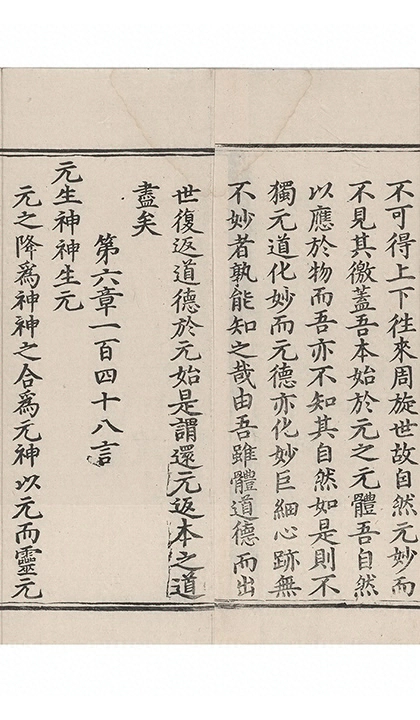 不可得上下徃來周旋世故自然元妙而
不見其徼蓋吾本始於元之元體吾自然
以應於物而吾亦不知其自然如是則不
獨元道化妙而元德亦化妙巨細心跡無
不妙者孰能知之哉由吾雖體道德而出
世復返道德於元始是謂還元返本之道
盡矣
第六章一百四十八言
元生神神生元
元之降爲神神之合爲元神以元而靈元